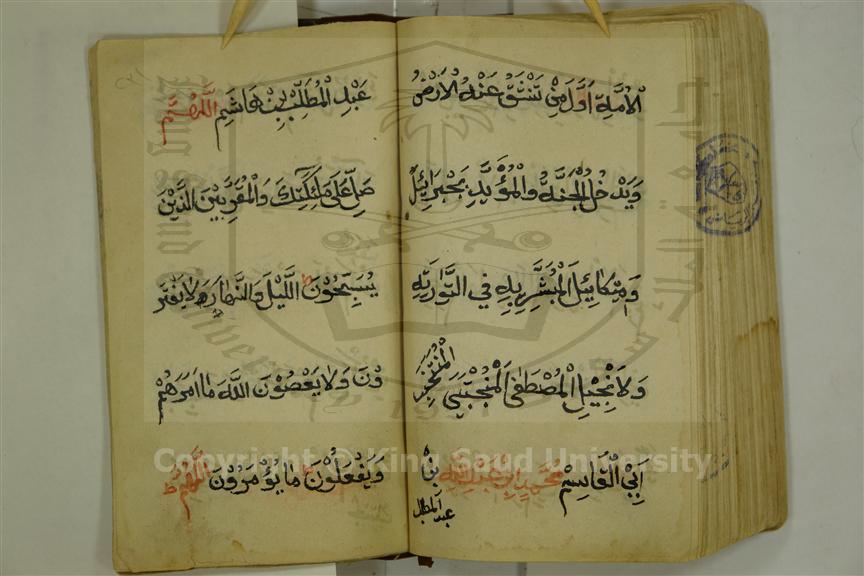 الْاُمَّةِ اَوَّلَ مَنْ تَنْشَقُّ عَنْهُ الْاَرْضُ
وَيَدْخُلُ الْجَنَّةَ وَالْمُؤَيَّدِ بِجَبْرَائِيْلَ
وَمِيْكَائِيْلَ الْمُبَشَّرِ بِهِ فِي التَّوْرَيةِ
وَلاَنْجِيْلِ الْمُصْطَفٰى الْمُجْتَبٰى الْمُنْتَخَبِ
اَبِيْ الْقَاسِمْ مُحَمَّدٍ ابْنِ عَبْدِ اللّٰهِ بْنِ
عبد المطلب
عَبْدِ الْمُطَّلِبْ بِنْ هَاشِمِ اَللّٰهُمَّ
صَلِّ عَلٰى مَلٰئِكَتِكَ وَالْمُقَرَّبِيْنَ الَّذِيْنَ
يُسَبِّحُوْنَ اللَّيْلَ وَالنَّهَارَ وَلاَيَفْتَرُ
وْنَ وَلاَيَعْصُوْنَ اللّٰهَ مَا اَمَرَهُمْ
وَيَفْعَلُوْنَ مَا يُؤْمَرُوْنَ اَللّٰهُمَّ
Copyright © King Saud University